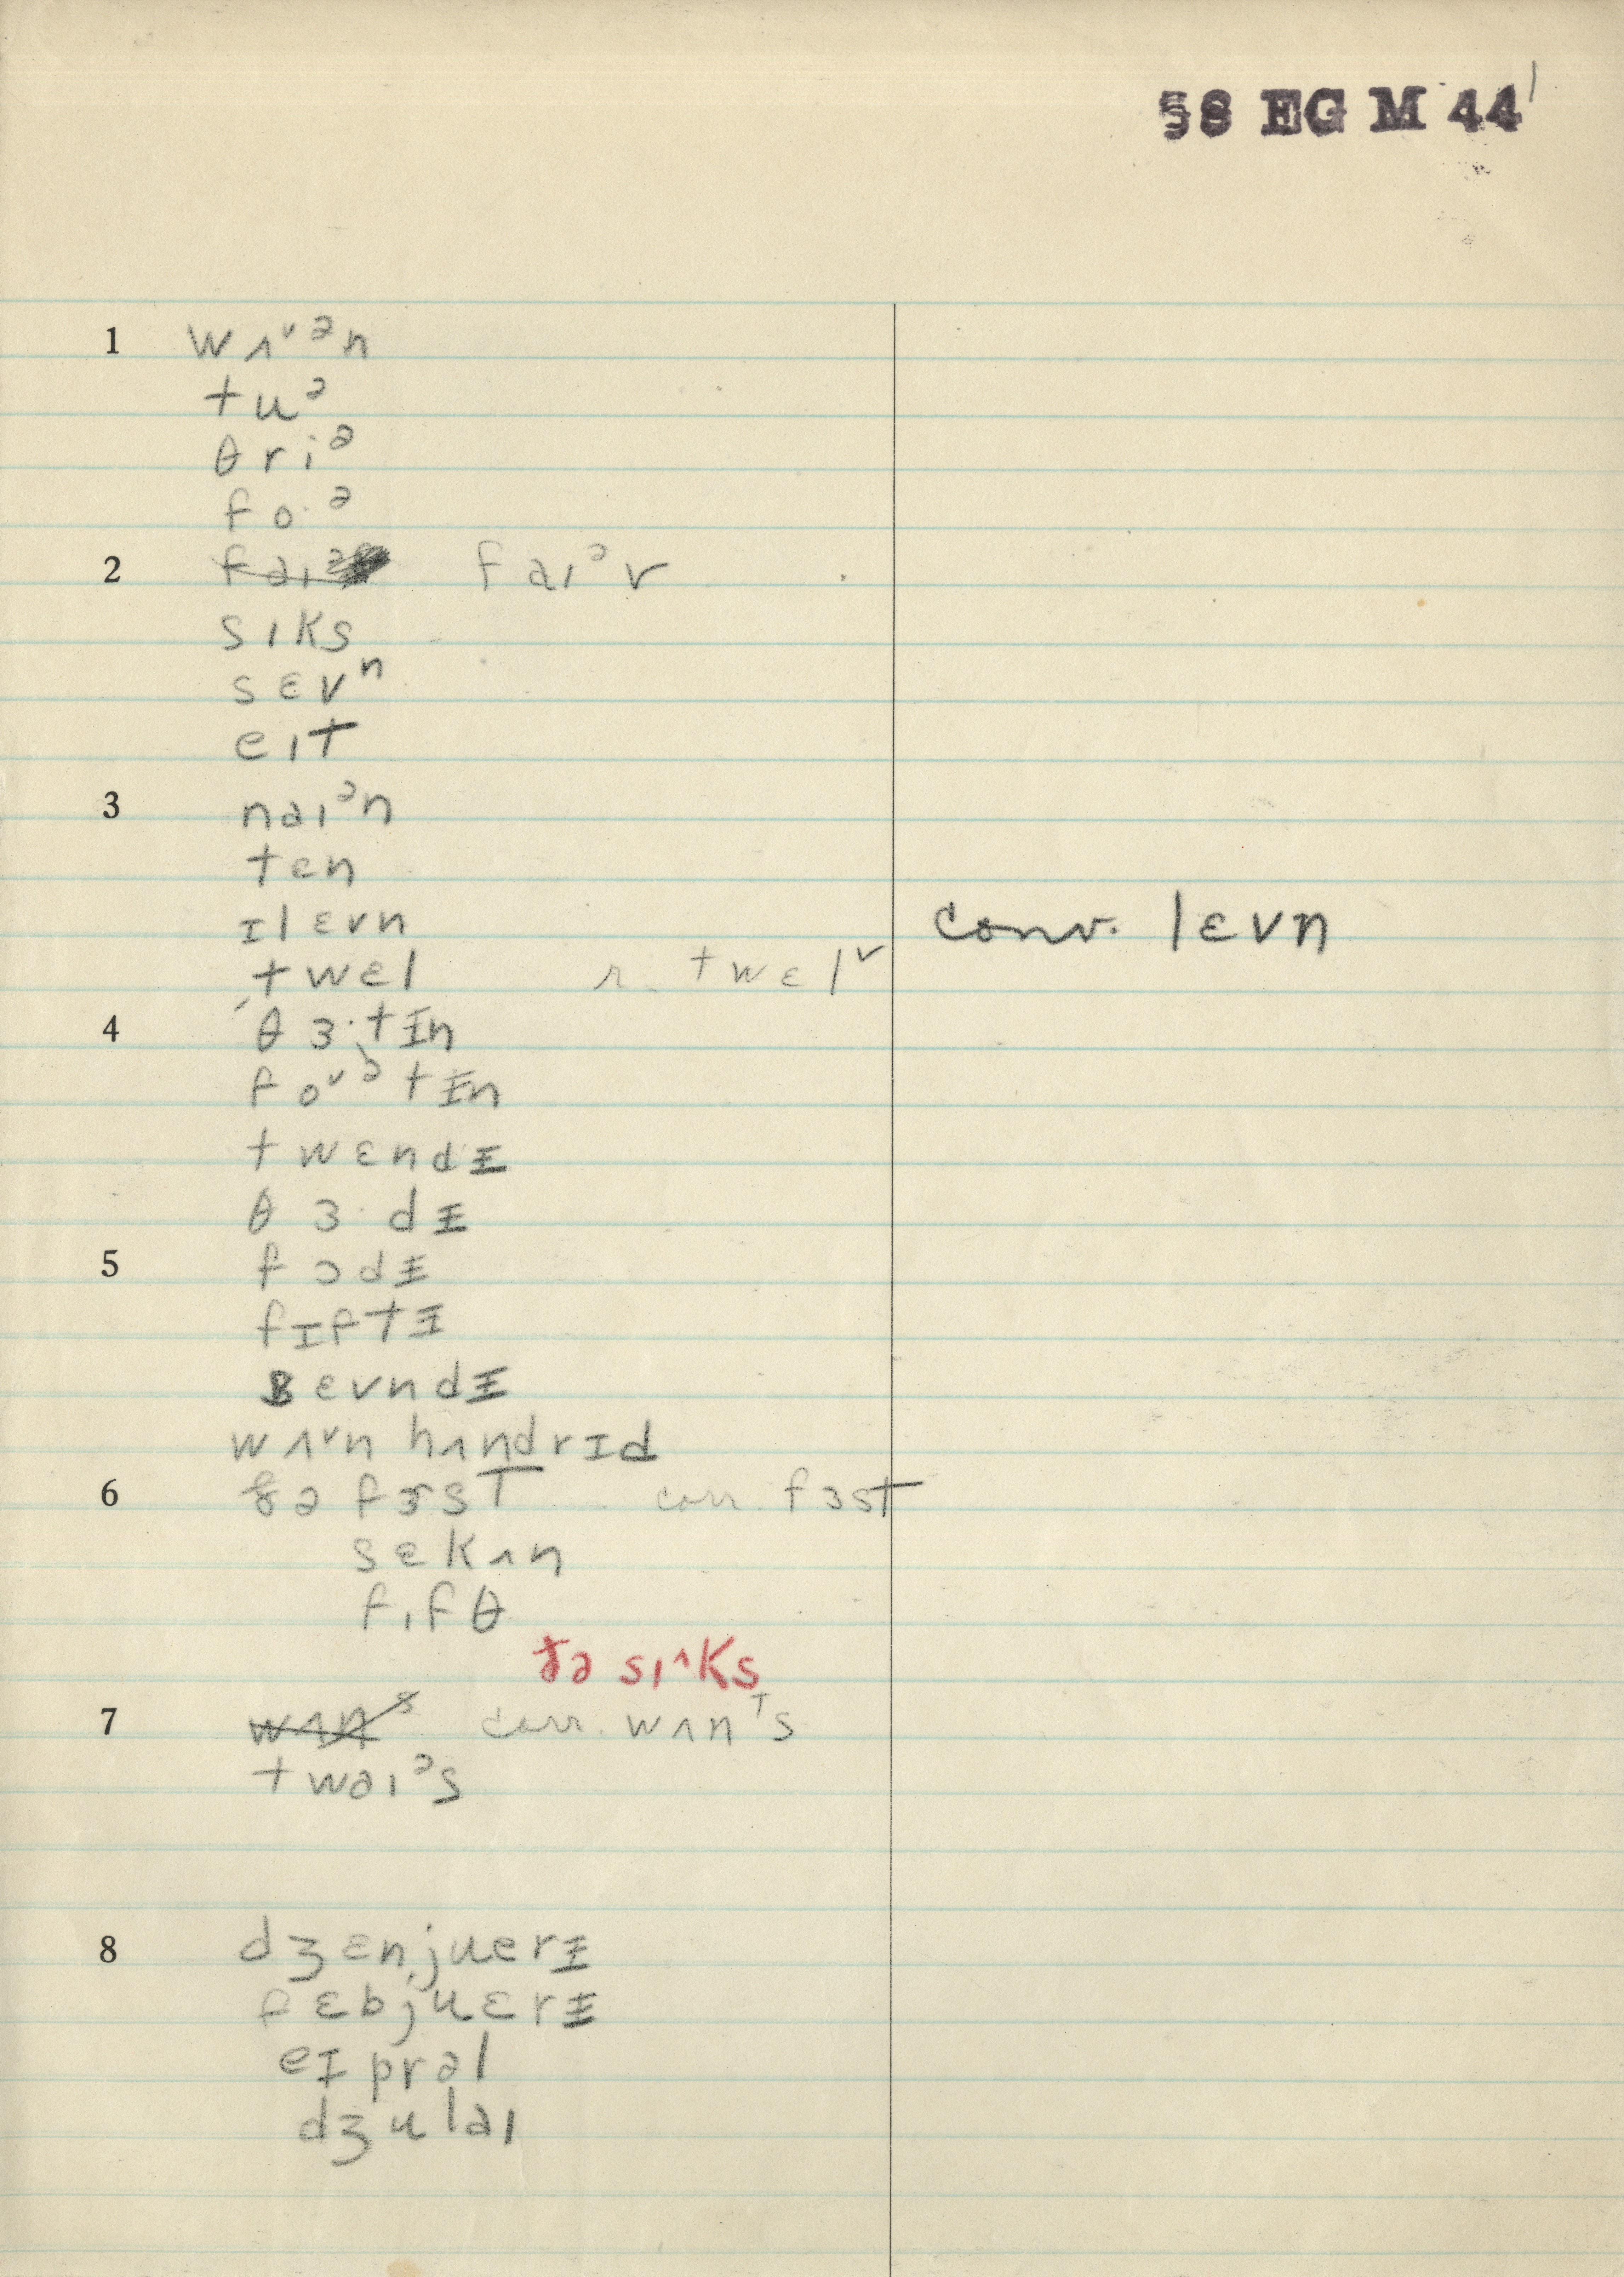 §8 EG M 44
1 wʌᵛᵊn
tuᵊ
θriᵊ
fo·ᵊ
2 faɪᵊv
sɪks
sɛvⁿ
eɪt
3 naɪᵊn
tɛn
ɪlɛvn conv. lɛvn
twɛl r. twɛlᵛ
4 θɜ·tɪn
foᵛᵊtɪn
twɛndɪ
θɜ·dɪ
5 fɔdɪ
fɪftɪ
sɛvndɪ
wʌᵛn hʌndrɪd
6 ðə fɜrst corr. fɜst
sɛkʌn
fɪfθ
ðə sɪ^ks
7 wʌnˢ corr. wʌnᵀs
twaɪᵊs
8 dʒɛnjuerɪ
fɛbjuɛrɪ
eɪprəl
dʒulaɪ